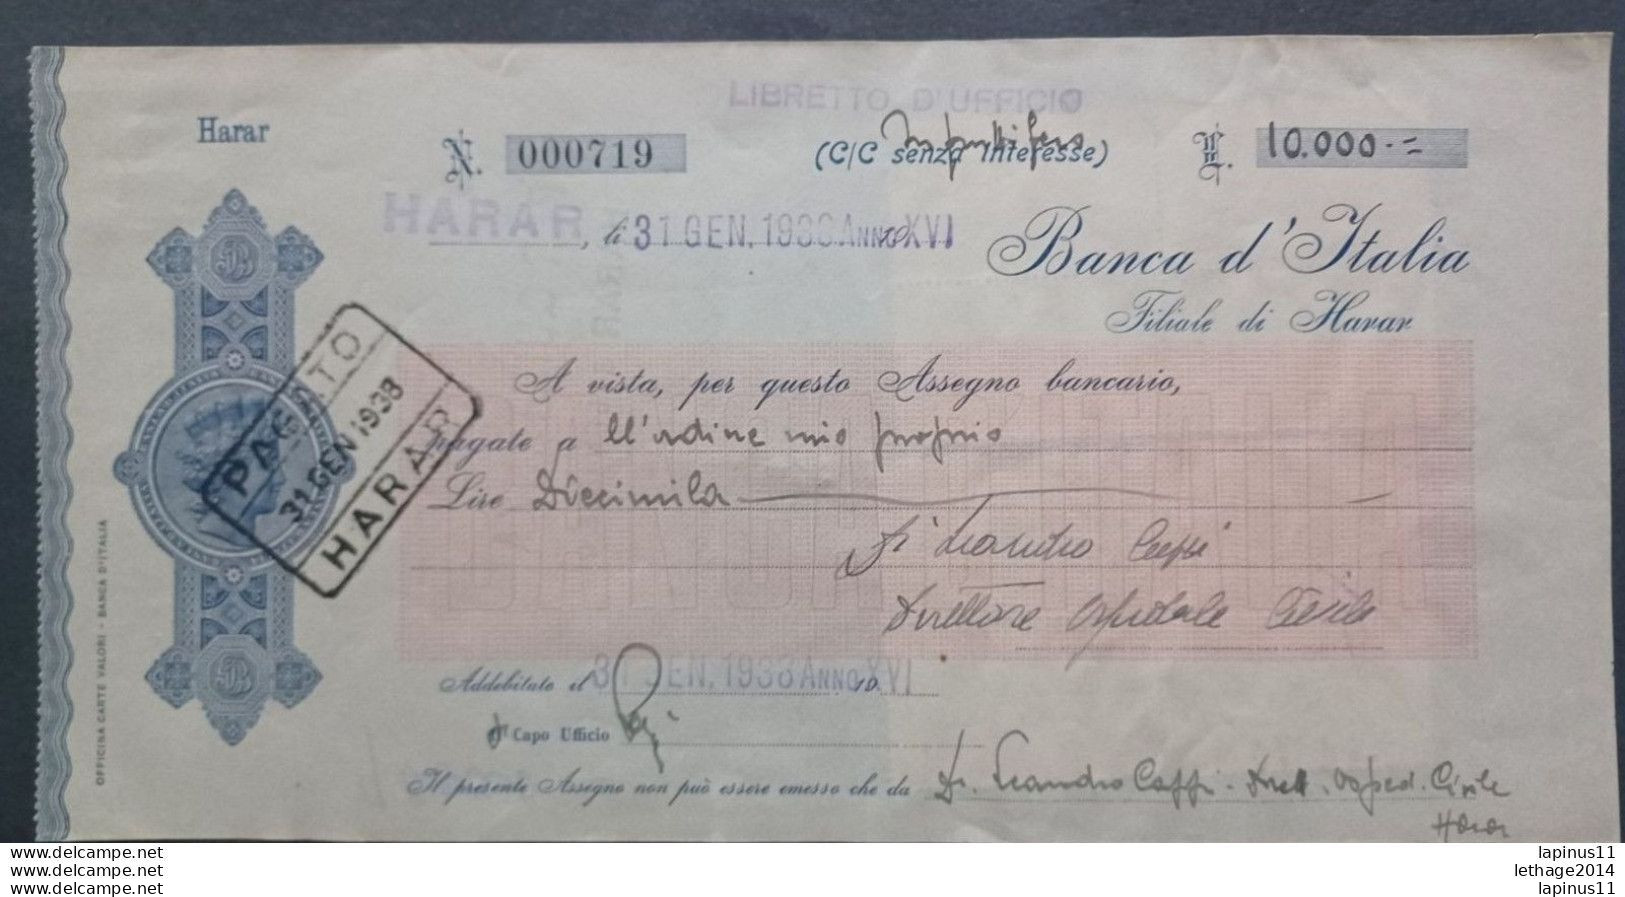 LIBRETTO D'UFFICIO
Harar
N. 000719
(C/C senza interesse)
£. 10.000.=
HARAR, li 31 GEN. 1938 ANNO XVI
Banca d'Italia
Filiale di Harar
A vista, per questo Assegno bancario,
pagate a ll'ordine mio proprio
Lire Diecimila
Dr Leandro Caffi
Direttore Ospedale Civile
PAGATO
31 GEN 1938
HARAR
Addebitato il 31 GEN. 1938 ANNO XVI
Il Capo Ufficio
Il presente Assegno non può essere emesso che da Dr. Leandro Caffi - Dirett. Osped. Civile
Harar
OFFICINA CARTE VALORI - BANCA D'ITALIA
www.delcampe.net
www.delcampe.net
www.delcampe.net
lapinus11
lethage2014
lapinus11